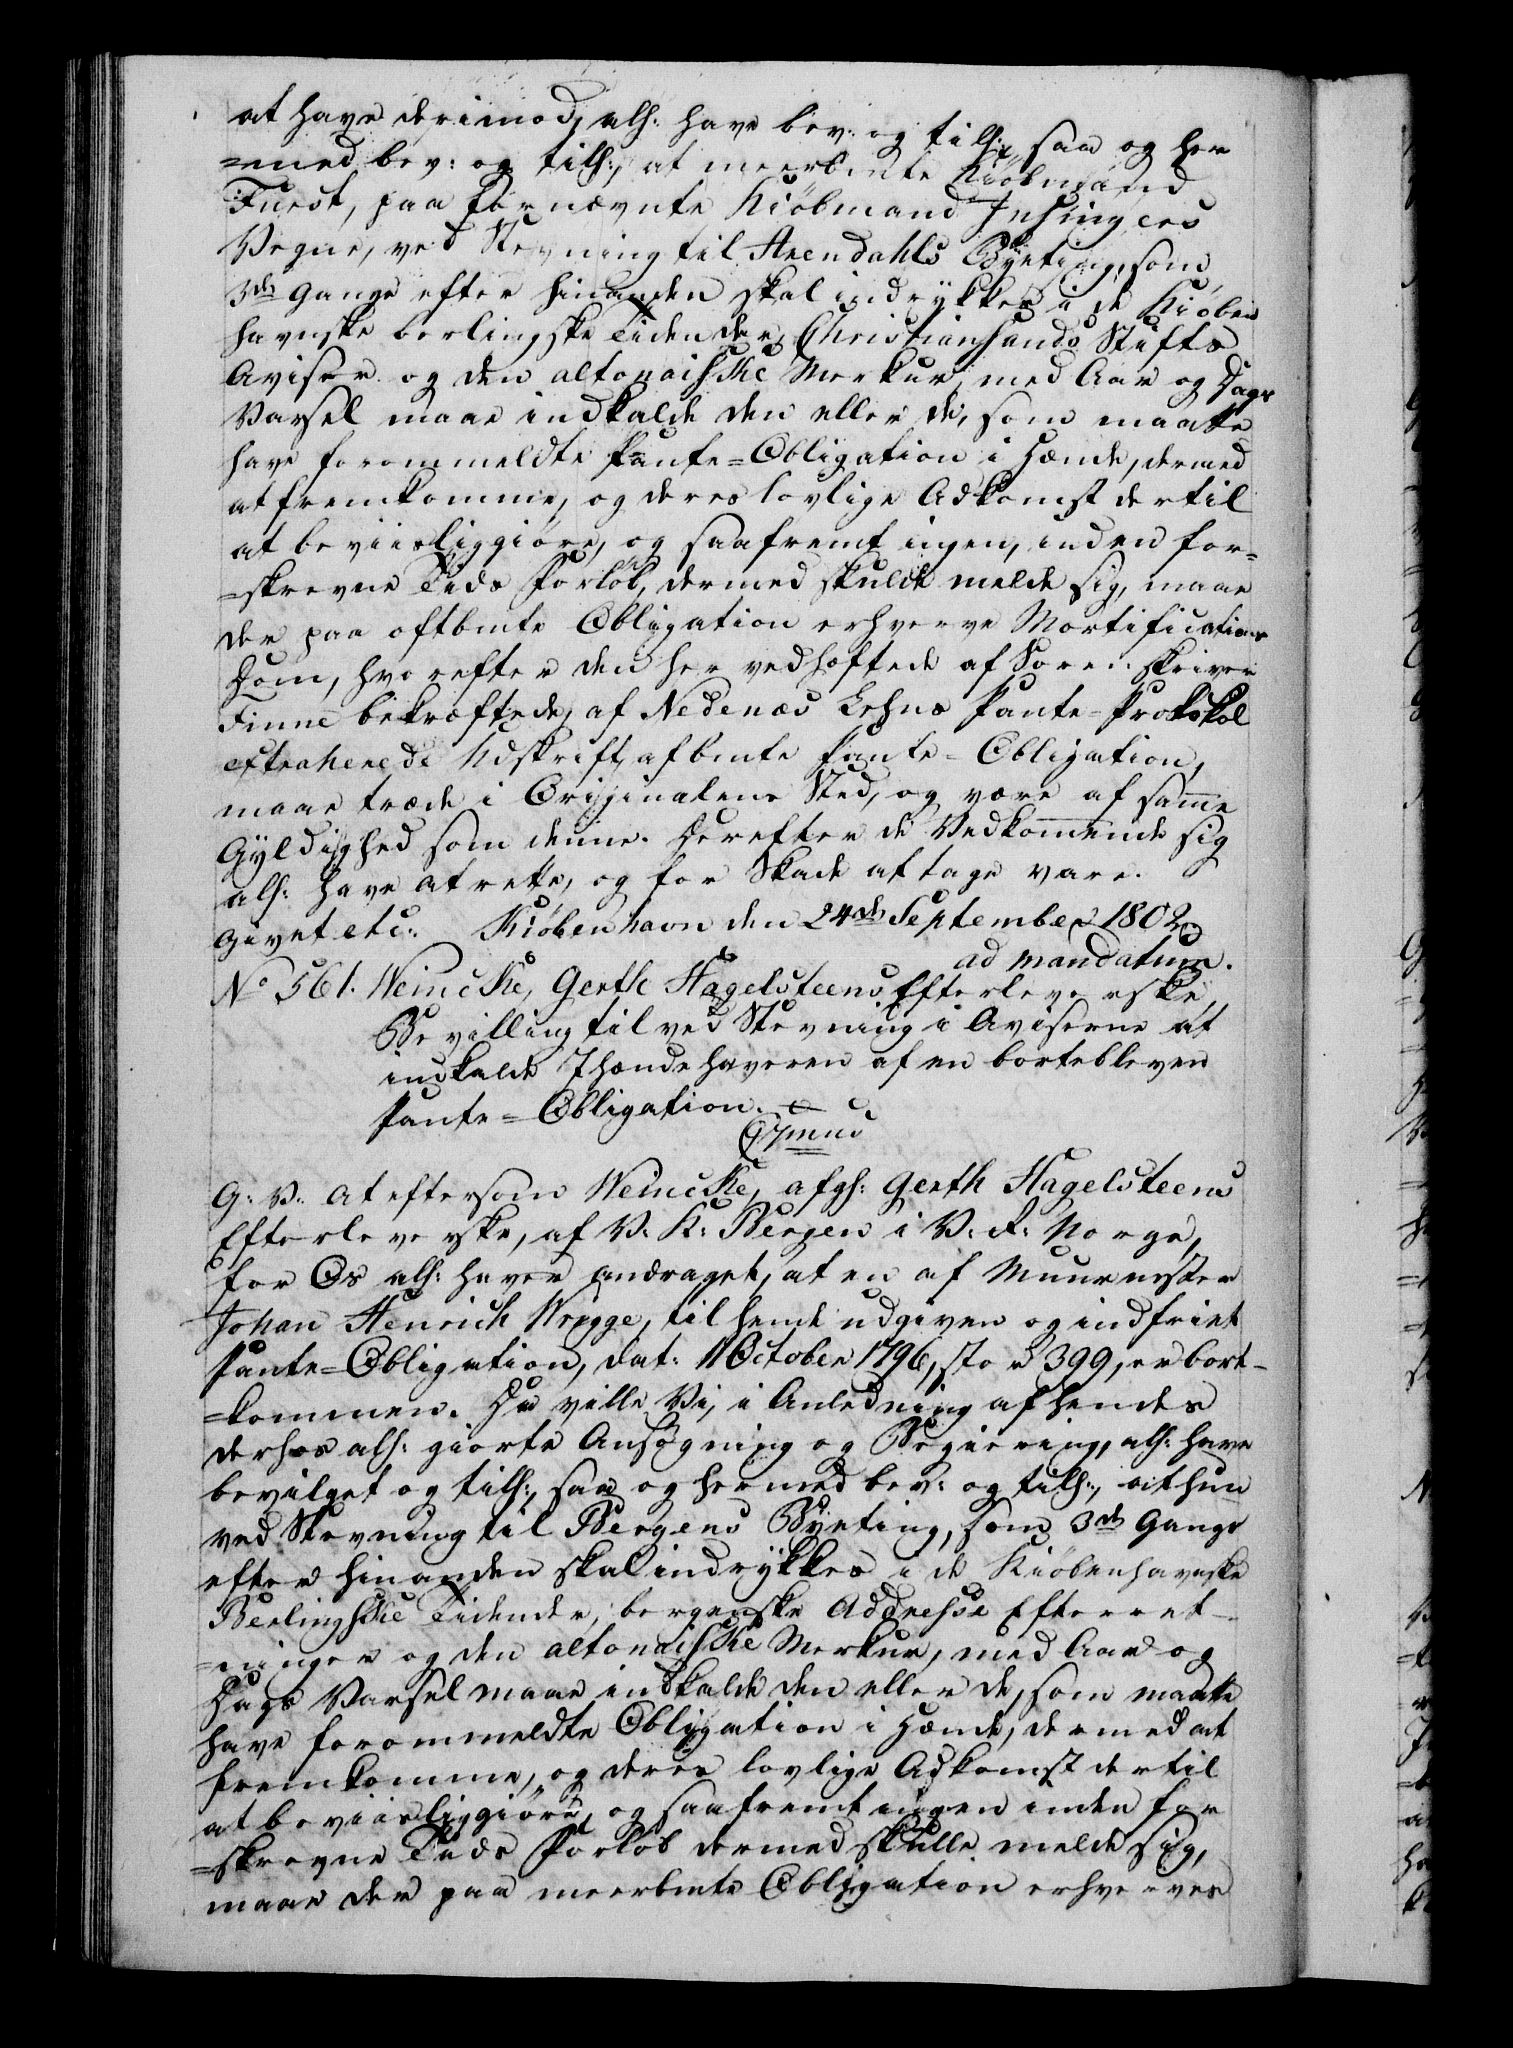 at have derimod, alh: have bev: og tilh:, saa og her
=med bev: og tilh:, at meerbmte Kiöbmand
Fuest, paa fornævnte Kiöbmand Insinges
Vegne, ved Stevning til Arendahls Byeting, som
3de Gange efter hinanden skal indrykkes i de Kiöben
havnske berlingske Tidender, Christiansands Stifts
Aviser og den altonaiske Merkur, med Aar og Dags
Varsel maae indkalde den eller de, som maatte
have forommeldte Pante=Obligation i Hænde, dermed
at fremkomme, og deres lovlige Adkomst dertil
at beviisliggiöre, og saafremt ingen, inden for=
=skrevne Tids Forlöb, dermed skulde melde sig, maae
der paa oftbmte Obligation erhverve Mortifications
Dom, hvorefter den her vedhæftede af Sorenskriver
Finne bekræftede, af Nedenæs Lehns Pante=Protokol
extraherede Udskrift af bmte Pante=Obligation,
maae træde i Originalens Sted, og være af samme
Gyldighed som denne. Derefter de Vedkommende sig
alh: have at rette, og for Skade at tage vare.
Givet etc: Kiöbenhavn den 24de September 1802
ad mandatum.
No 561. Weincke, Gerth Hagelsteens Efterleverske,
Bevilling til ved Stevning i Aviserne at
indkalde Ihændehaveren af en bortebleven
Pante=Obligation.
G: V: At eftersom Weincke, afgh: Gerth Hagelsteens
Efterleverske, af V: K: Bergen i V: R: Norge,
for Os alh: haver andraget, at en af Muurmester
Johan Henrich Wrigge, til hende udgiven og indfriet
Pante=Obligation, dat: 11 October 1796, stor 399, er bort=
=kommen. Da ville Vi, i Anledning af hendes
derhos alh: giorte Ansøgning og Begiering, alh: have
bevilget og tilh:, saa og hermed bev: og tilh:, at hun
ved Stevning til Bergens Byeting, som 3de Gange
efter hinanden skal indrykkes i de Kiöbenhavnske
Berlingske Tidender, bergenske Addresse Efterret=
=ninger og den altonaiske Merkur, med Aar og
Dags Varsel maae indkalde den eller de, som maatte
have forommeldte Obligation i Hænde, dermed at
fremkomme, og deres lovlige Adkomst dertil
at beviisliggiöre, og saafremt ingen inden for
=skrevne Tids Forlöb dermed skulle melde sig,
maae der paa meerbmte Obligation erhverves